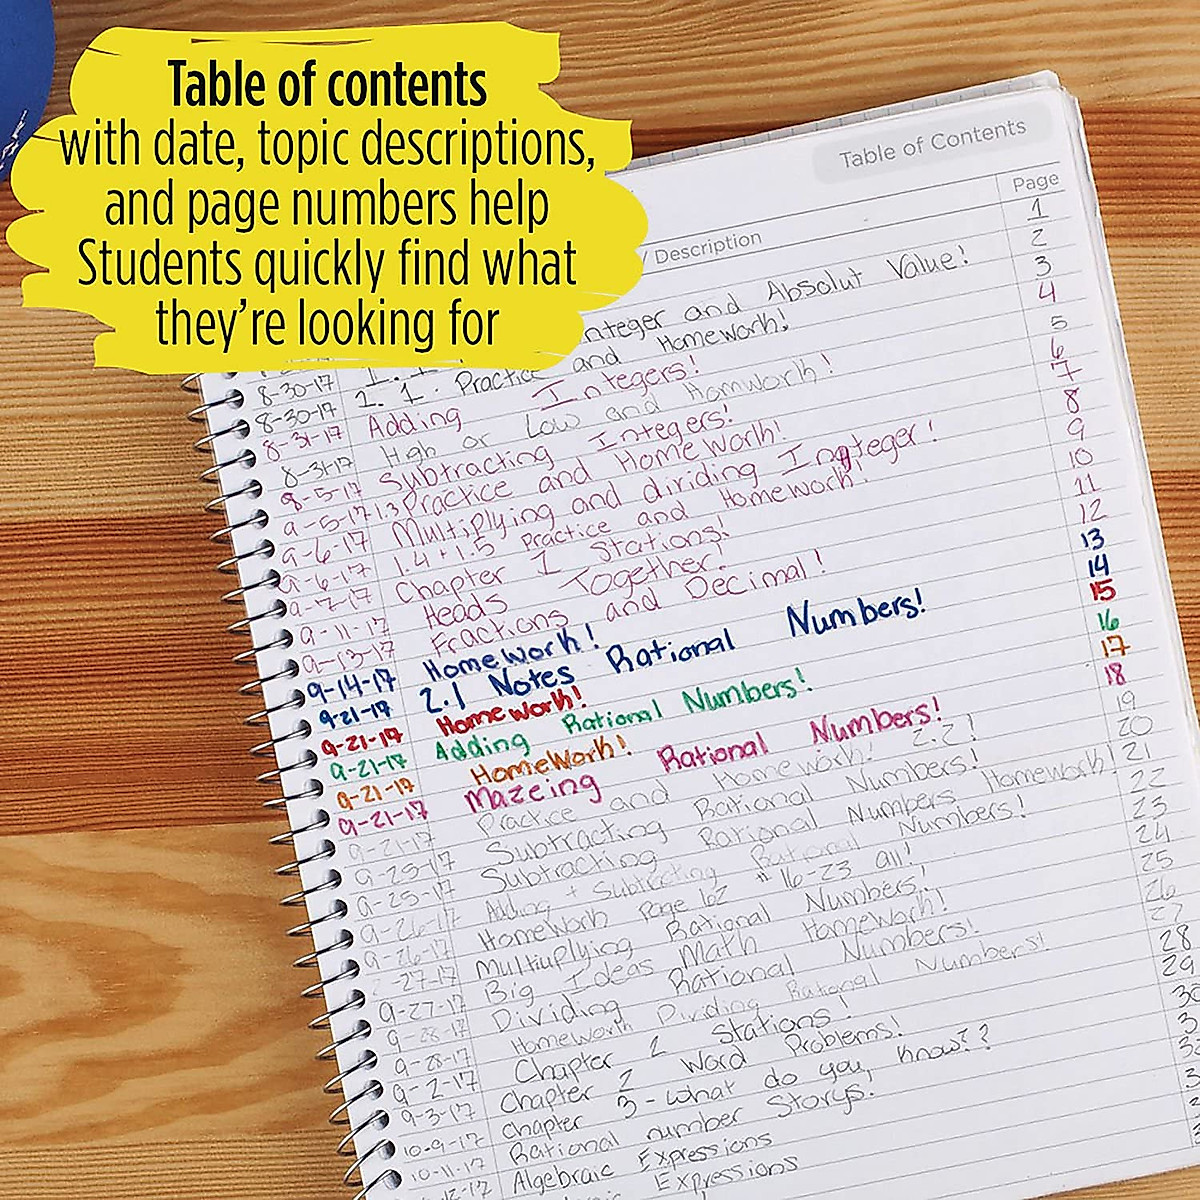 Table of contents
with date, topic descriptions,
and page numbers help
Students quickly find what
they're looking for
Table of Contents
/ Description Page
1
2
nteger and Absolut Value! 3
8-30-17 1. 1. Practice and Homework! 4
8-30-17 Adding Integers! 5
8-31-17 Hgh or Low and Homework! 6
8-31-17 Subtracting Integers! 7
8-5-17 1.3 Practice and Homeworh! 8
9-5-17 Multiplying and dividing Integer! 9
9-6-17 1.4 + 1.5 Practice and Homework! 10
9-6-17 Chapter 1 Stations! 11
9-7-17 Heads Together! 12
9-11-17 Fractions and Decimal!
9-13-17 Homework! 13
9-14-17 2.1 Notes Rational Numbers! 14
9-21-17 Homework! 15
9-21-17 Adding Rational Numbers! 16
9-21-17 HomeWork! 17
9-21-17 Mazeing Rational Numbers! 18
9-21-17 Practice and Homework! 2.2! 19
9-21-17 Subtracting Rational Numbers! 20
9-25-17 Subtracting Rational Numbers Homework! 21
9-25-17 Adding + Subtrecting Rational Numbers! 22
9-26-17 Homework Page 162 # 16-23 all! 23
9-26-17 Multiuplying Rational Numbers! 24
-27-17 Big Ideas Math Homework! 25
9-27-17 Dividing Rational Numbers! 26
9-28-17 Homeworh Dividing Rational Numbers! 27
9-28-17 Chapter 2 Stations! 28
9-2-17 Chapter 2 Word Problems! 29
9-3-17 Chapter 3-What do you know?? 30
10-9-17 Rational number Storys.
10-11-17 Algebraic Expressions
-12-17 Expressions